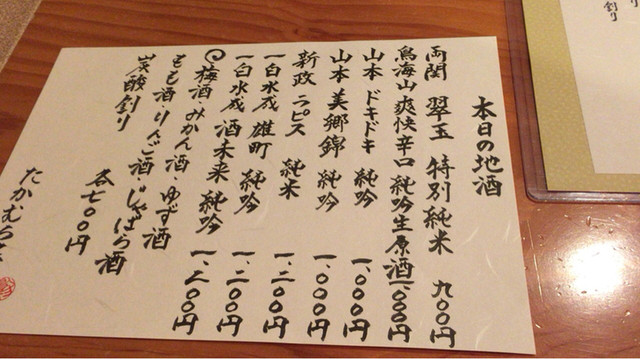 本日の地酒
両関 翠玉 特別純米 九〇〇円
鳥海山 爽快辛口 純吟生原酒 一、〇〇〇円
山本 ドキドキ 純吟 一、〇〇〇円
山本 美郷錦 純吟 一、〇〇〇円
新政 ラピス 純米 一、二〇〇円
一白水成 雄町 純吟 一、二〇〇円
一白水成 酒未来 純吟 一、二〇〇円
梅酒・みかん酒・ゆず酒
もも酒・りんご酒・じゃばら酒
炭酸割り 各七〇〇円
たかむら
割り